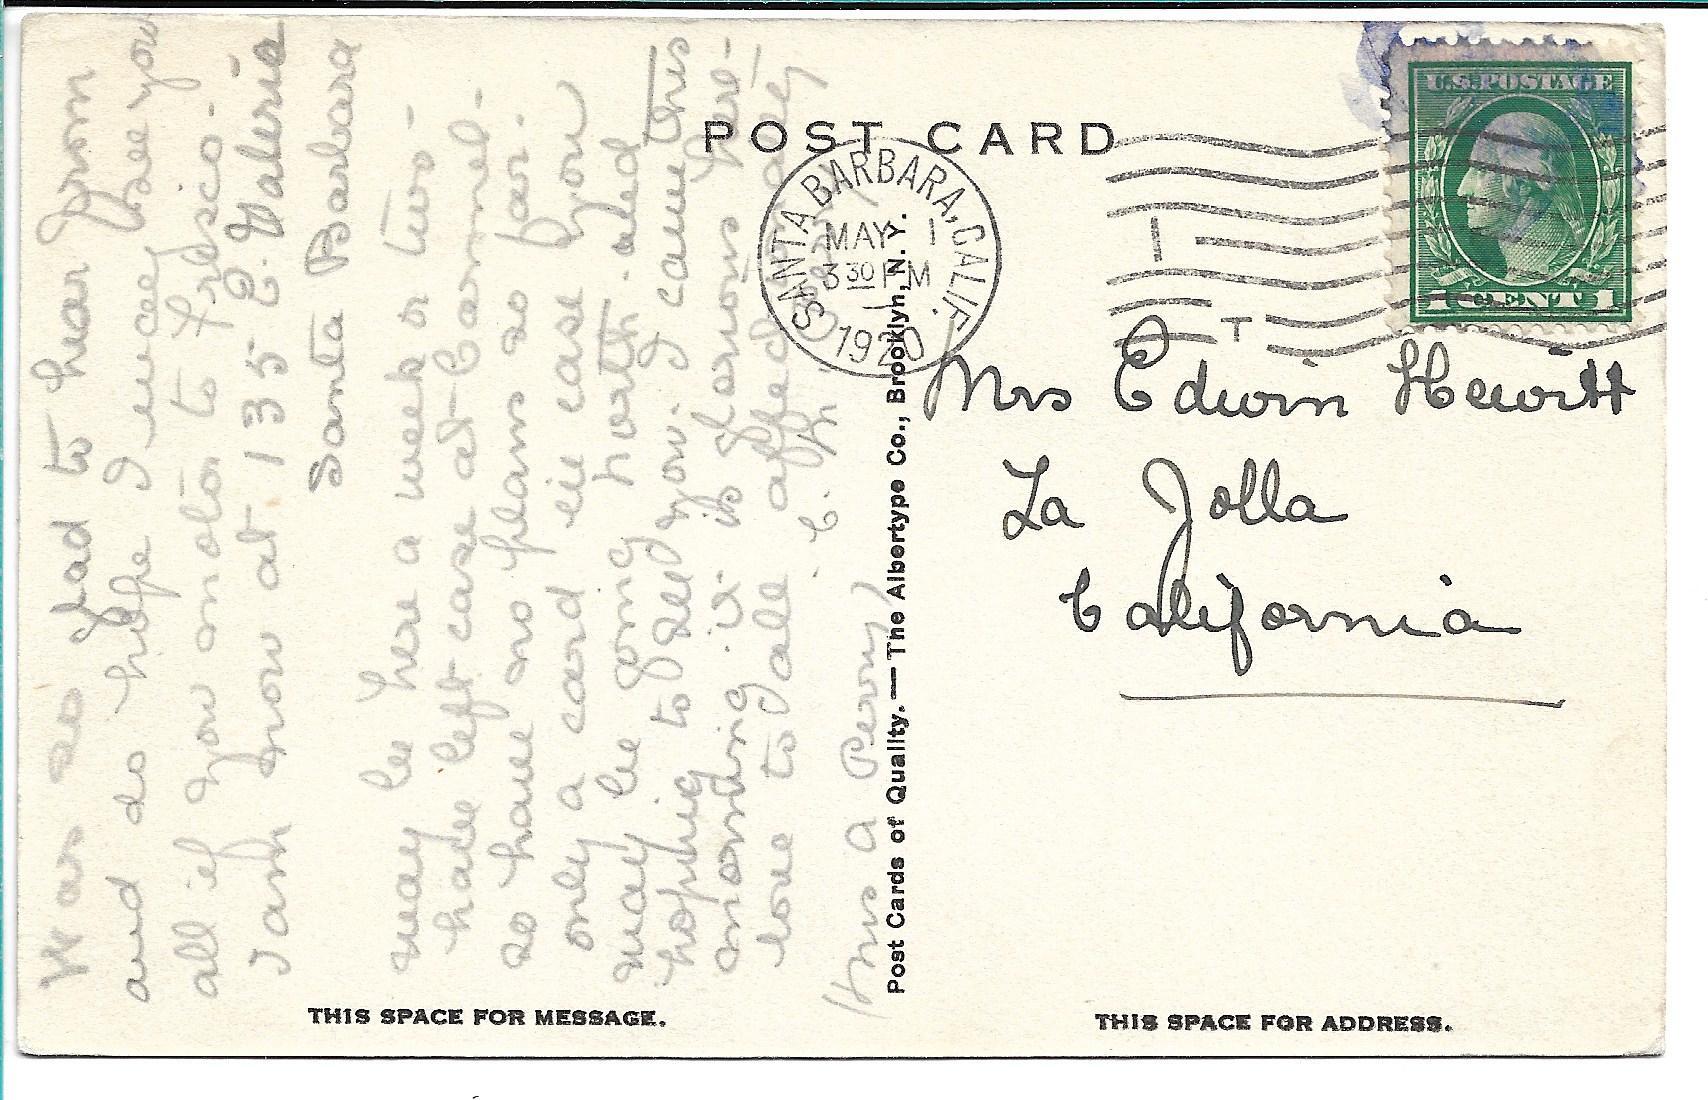 POST CARD
SANTA BARBARA, CALIF.
MAY 1
3 30 PM
1920
U.S. POSTAGE
1 CENT 1
Mrs Edwin Hewitt
La Jolla
California
THIS SPACE FOR ADDRESS.
Post Cards of Quality. — The Albertype Co., Brooklyn, N. Y.
Was so glad to hear from
and do hope I may see you
all if you motor to Frisco.
I am now at 135 E. Valerio
Santa Barbara
may be here a week or two -
have left case at Carmel -
so have no plans so far.
only a card in case you
may be going north and
hoping to see you. I came this
morning it is glorious here -
love to all affectionately
(Mrs A Perry)
THIS SPACE FOR MESSAGE.